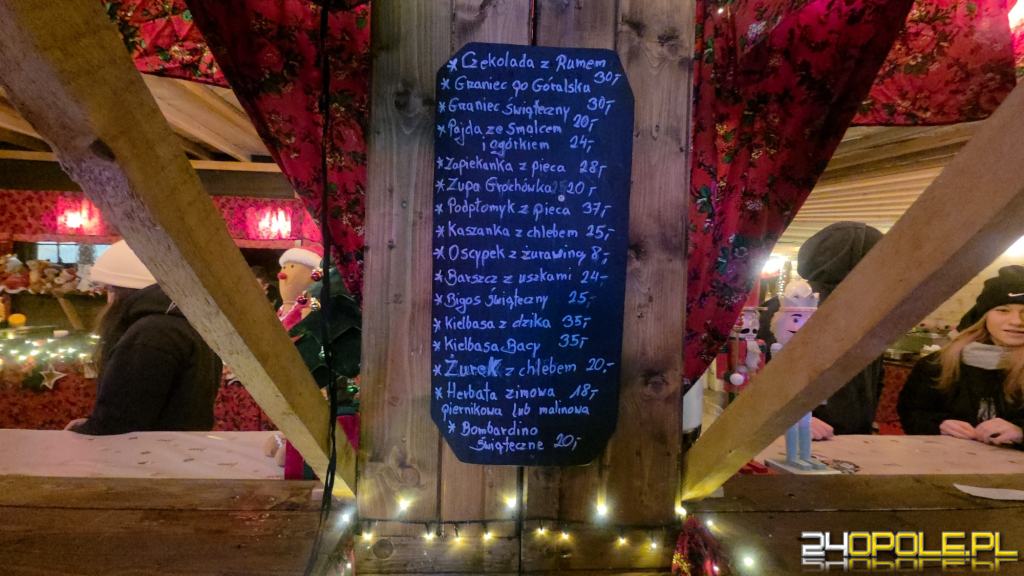 * Czekolada z Rumem
30,-
* Grzaniec po Góralsku
* Grzaniec Świąteczny 30,-
* Pajda ze Smalcem 20,-
i ogórkiem 24,-
* Zapiekanka z pieca 28,-
* Zupa Grochówka 20,-
* Podpłomyk z pieca 37,-
* Kaszanka z chlebem 25,-
* Oscypek z żurawiną 8,-
* Barszcz z uszkami 24-
* Bigos Świąteczny 25,-
* Kiełbasa z dzika 35,-
* Kiełbasa Bacy 35,-
* Żurek z chlebem 20,-
* Herbata zimowa 18,-
piernikowa lub malinowa
* Bombardino
Świąteczne 20,-
24OPOLE.PL